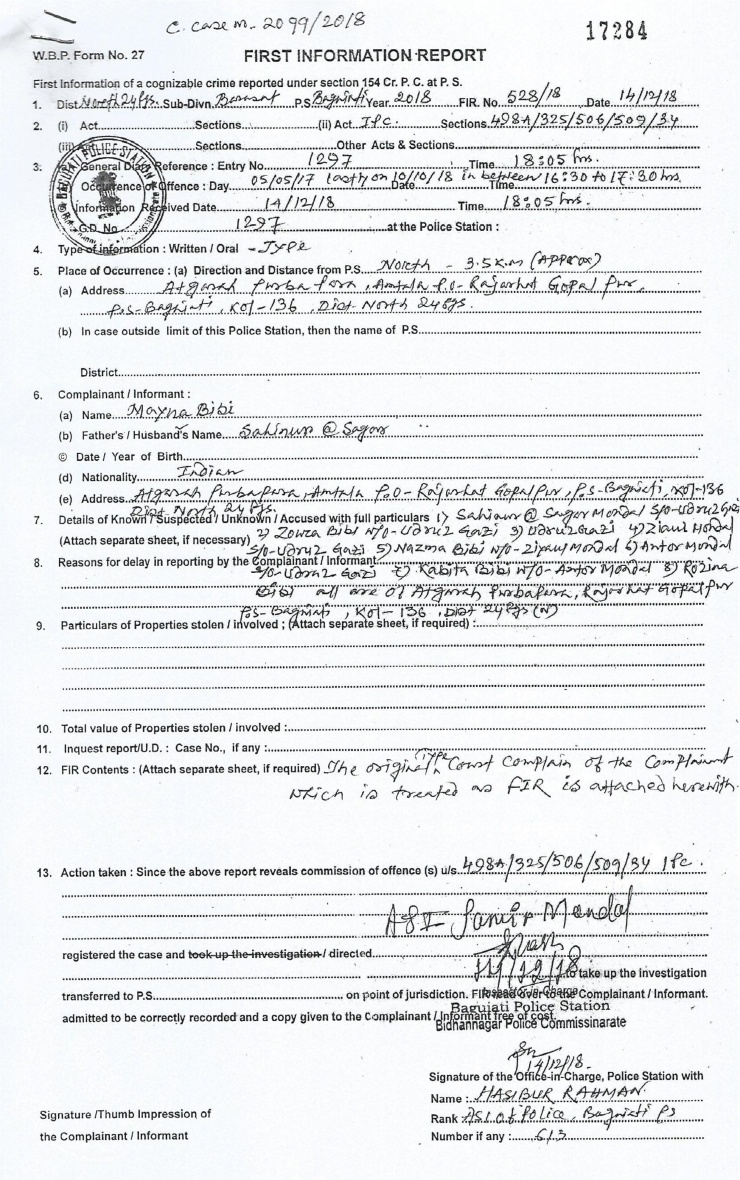 C. Case no. 2099/2018
17284
W.B.P. Form No. 27
FIRST INFORMATION REPORT
First Information of a cognizable crime reported under section 154 Cr. P. C. at P. S.
1. Dist. North 24 Pgs. Sub-Divn. Barasat P.S Baguiati Year. 2018 FIR. No. 528/18 Date 14/12/18
2. (i) Act Sections (ii) Act IPC. Sections. 498A/325/506/509/34
(iii) Act Sections Other Acts & Sections
3. General Diary Reference : Entry No. 1297 Time 18:05 hrs.
Occurrence of Offence : Day 05/05/17 lastly on 10/10/18 in between 16:30 to 17:30 hrs. Date Time
Information Received Date 14/12/18 Time 18:05 hrs.
G.D. No. 1297 at the Police Station :
BAGUIATI POLICE STATION
4. Type of information : Written / Oral - Type
5. Place of Occurrence : (a) Direction and Distance from P.S. North - 3.5 K.m (Approx)
(a) Address Atgarah Purba Para, Amtala P.O- Rajarhat Gopal Pur,
P.S- Baguiati, Kol-136, Dist North 24 Pgs.
(b) In case outside limit of this Police Station, then the name of P.S
District
6. Complainant / Informant :
(a) Name Mayna Bibi
(b) Father's / Husband's Name Sahinur @ Sagor
© Date / Year of Birth
(d) Nationality Indian
(e) Address Atgarah Purbapara, Amtala P.O- Rajarhat Gopalpur, P.S- Baguiati, Kol-136
Dist North 24 Pgs.
7. Details of Known / Suspected / Unknown / Accused with full particulars 1) Sahinur @ Sagor Mondal S/O- Gazi
(Attach separate sheet, if necessary) 2) Bibi W/O- Gazi 3) Gazi 4) Ziaul Mondal
S/O- Gazi 5) Nazma Bibi W/O- Ziaul Mondal 6) Antor Mondal
8. Reasons for delay in reporting by the Complainant / Informant
S/O- Gazi 7) Kabita Bibi W/O- Antor Mondal 8) Rozina
Bibi all are of Atgarah Purbapara, Rajarhat Gopalpur
P.S- Baguiati, Kol-136, Dist 24 Pgs (N)
9. Particulars of Properties stolen / involved ; (Attach separate sheet, if required) :
10. Total value of Properties stolen / involved :
11. Inquest report/U.D. : Case No., if any :
12. FIR Contents : (Attach separate sheet, if required) The original Type Court Complain of the Complainant
which is treated as FIR is attached herewith.
13. Action taken : Since the above report reveals commission of offence (s) u/s. 498A/325/506/509/34 IPC.
ASI Samir Mondal
registered the case and took up the investigation / directed
14/12/18 to take up the investigation
transferred to P.S. on point of jurisdiction. FIR read over to the Complainant / Informant.
Inspector-in-Charge
admitted to be correctly recorded and a copy given to the Complainant / Informant free of cost.
Baguiati Police Station
Bidhannagar Police Commissinarate
14/12/18.
Signature of the Office-in-Charge, Police Station with
Name : HASIBUR RAHMAN
Signature /Thumb Impression of
Rank ASI of Police, Baguiati PS
the Complainant / Informant
Number if any : 613